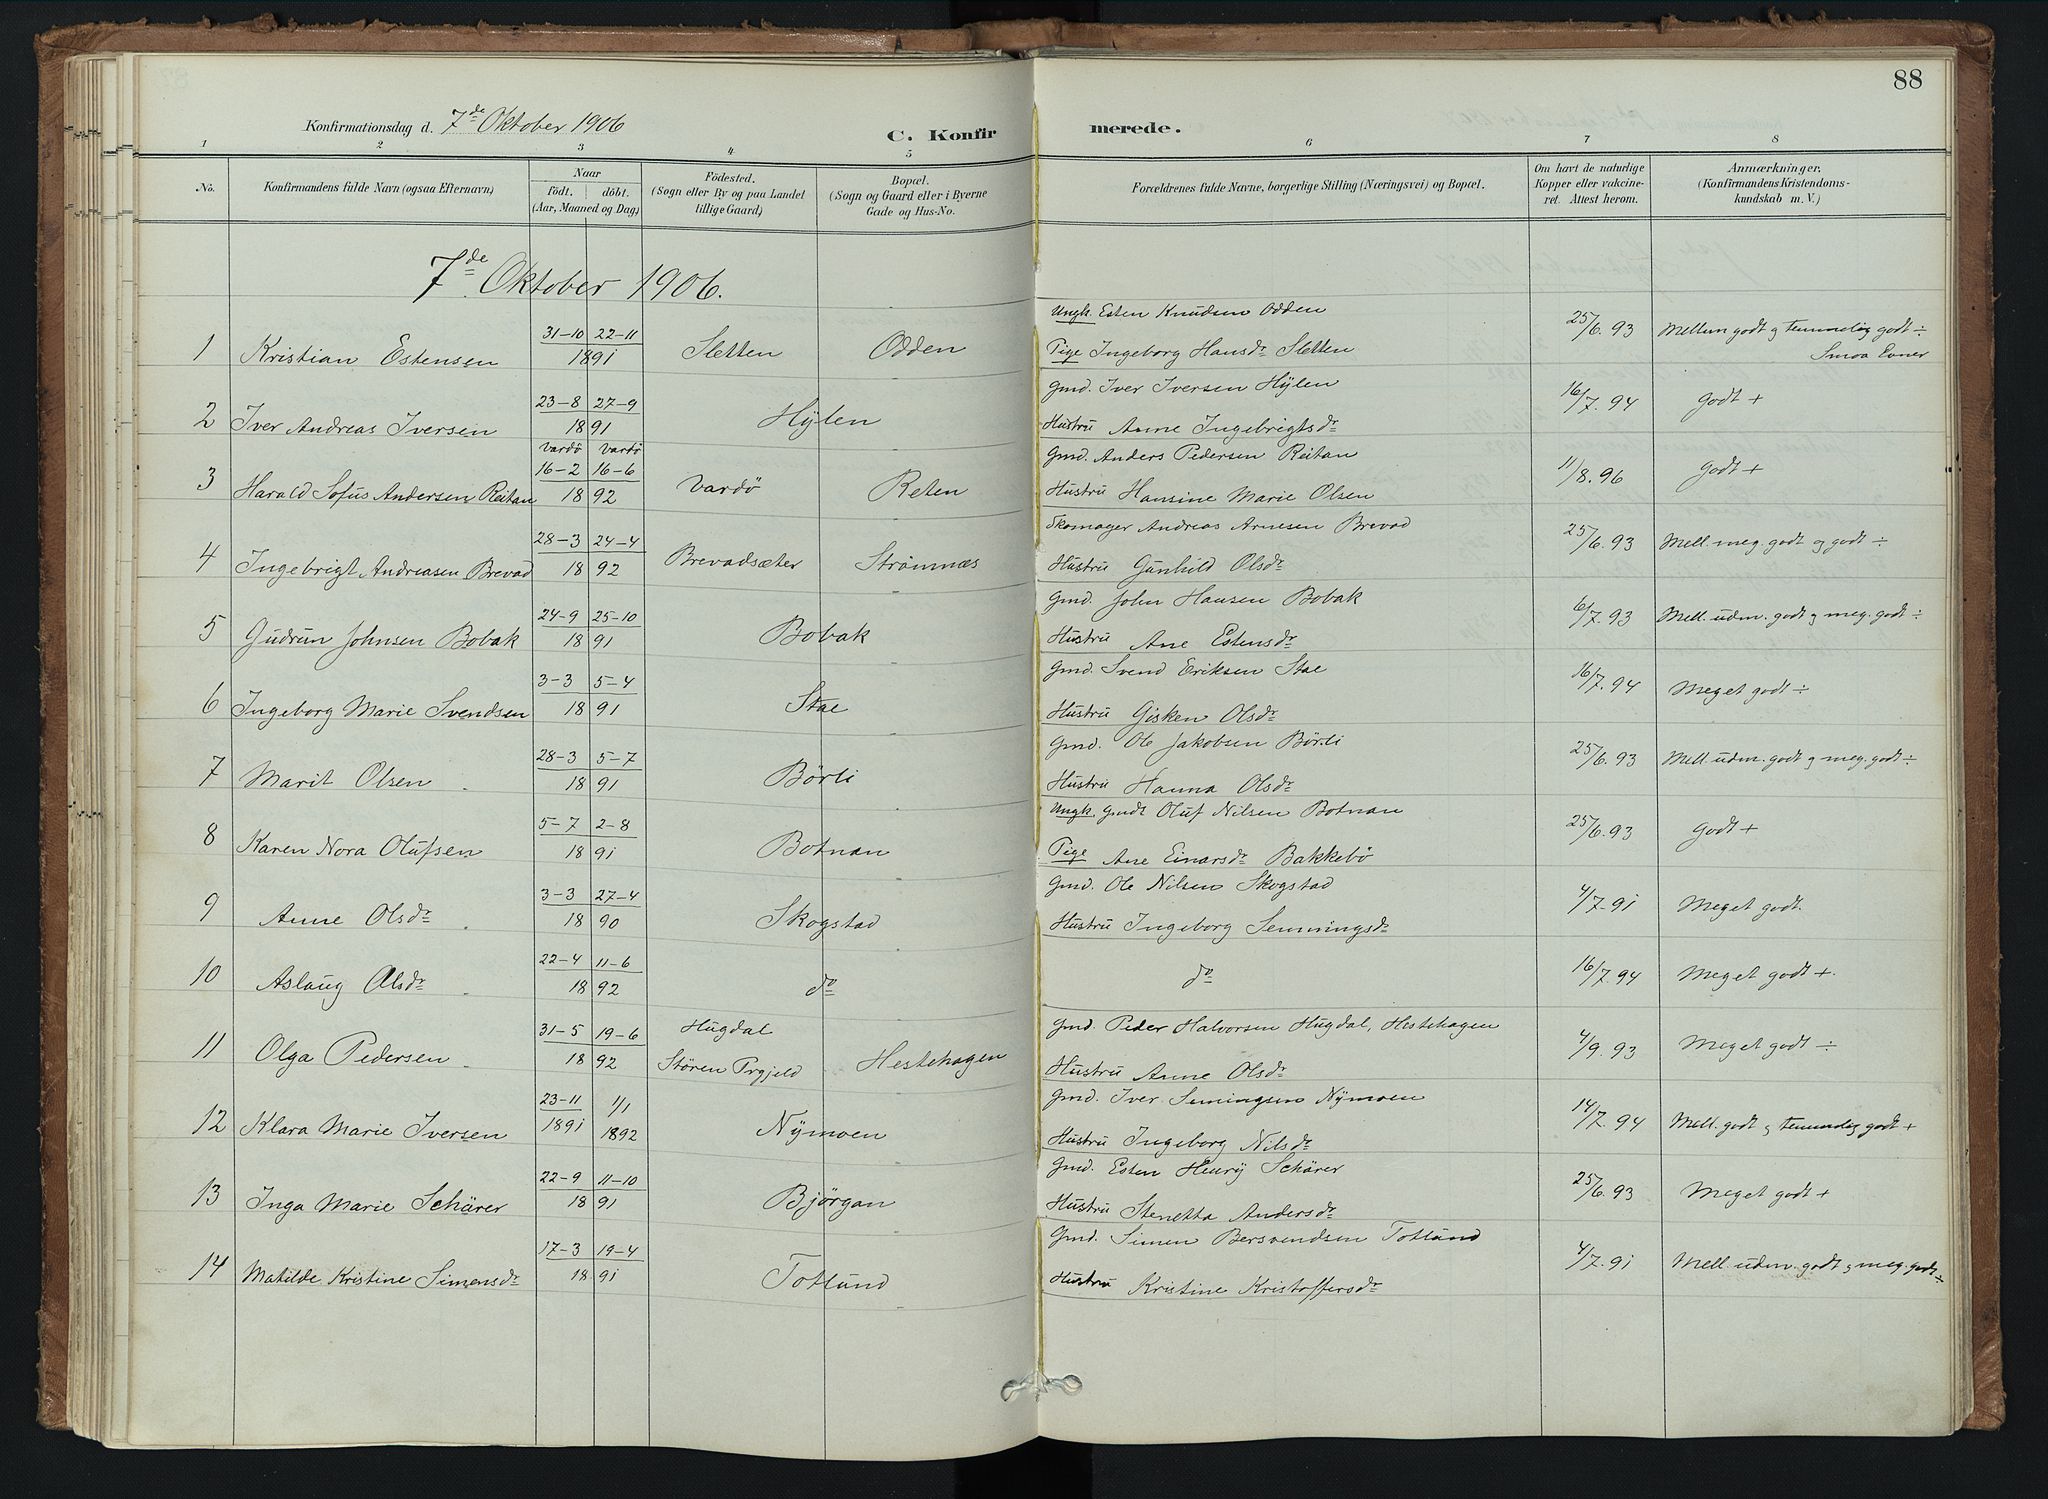 88
Konfirmationsdag d. 7de Oktober 1906
C. Konfirmerede.
1 2 3 4 5 6 7 8
No. Konfirmandens fulde Navn (ogsaa Efternavn) Naar født. døbt. (Aar, Maaned og Dag) Födested. (Sogn eller By og paa Landet tillige Gaard) Bopæl. (Sogn og Gaard eller i Byerne Gade og Hus-No. Forældrenes fulde Navne, borgerlige Stilling (Næringsvei) og Bopæl. Om havt de naturlige Kopper eller vakcineret. Attest herom. Anmærkninger. (Konfirmandens Kristendomskundskab m. V.)
7de Oktober 1906.
1 Kristian Estensen 31-10 22-11 1891 Sletten Odden Ungk. Esten Knudsen Odden 25/6.93 Mellem godt g temmelig godt ÷
Pige Ingeborg Hansdr Sletten Smaa Evner
2 Iver Andreas Iversen 23-8 27-9 1891 Hÿlen Gmd. Iver Iversen Hÿlen 16/7.94 Godt +
Hustru Anne Ingebrigtsdr
3 Harald Sofus Andersen Reitan Vardö Vardö 16-2 16-6 1892 Vardö Reten Gmd. Anders Pedersen Reitan 11/8.96 Godt +
Hustru Hansine Marie Olsen
4 Ingebrigt Andreasen Brevad 28-3 24-4 1892 Brevadsæter Strømnæs Skomager Andreas Arnesen Brevad 25/6.93 Mell. meg. godt og godt ÷
Hustru Gunhild Olsdr
5 Gudrun Johnsen Bobak 24-9 25-10 1891 Bobak Gmd. John Hansen Bobak 6/7.93 Mell. udm. godt g meg. godt ÷
Hustru Ane Estensdr
6 Ingeborg Marie Svendsen 3-3 5-4 1891 Stae Gmd. Svend Eriksen Stae 16/7.94 Meget godt ÷
Hustru Gisken Olsdr
7 Marit Olsen 28-3 5-7 1891 Børli Gmd. Ole Jakobsen Børli 25/6.93 Mell. udm. godt g meg. godt ÷
Hustru Hanna Olsdr
8 Karen Nora Olufsen 5-7 2-8 1891 Botnan Ungk. Gmdt Oluf Nilsen Botnan 25/6.93 Godt +
Pige Ane Einarsdr Bakkebö
9 Anne Olsdr 3-3 27-4 1890 Skogstad Gmd. Ole Nilsen Skogstad 4/7.91 Meget godt.
Hustru Ingeborg Semmingsdr
10 Aslaug Olsdr 22-4 11-6 1892 do do 16/7.94 Meget godt +
11 Olga Pedersen 31-5 19-6 1892 Hugdal Støren Prgjeld Hestehagen Gmd. Peder Halvorsen Hugdal, Hestehagen 4/9.93 Meget godt ÷
Hustru Anne Olsdr
12 Klara Marie Iversen 23-11 1891 1/1 1892 Nÿmoen Gmd. Iver Semingsen Nÿmoen 14/7.94 Mell. godt g temmelig godt +
Hustru Ingeborg Nilsdr
13 Inga Marie Schärer 22-9 11-10 1891 Bjørgan Gmd. Esten Henrÿ Schärer 25/6.93 Meget godt +
Hustru Stenetta Andersdr
14 Matilde Kristine Simensdr 17-3 19-4 1891 Totlund Gmd. Simen Bersvendsen Totlund 4/7.91 Mell. udm. godt g meg. godt ÷
Hustru Kristine Kristoffersdr